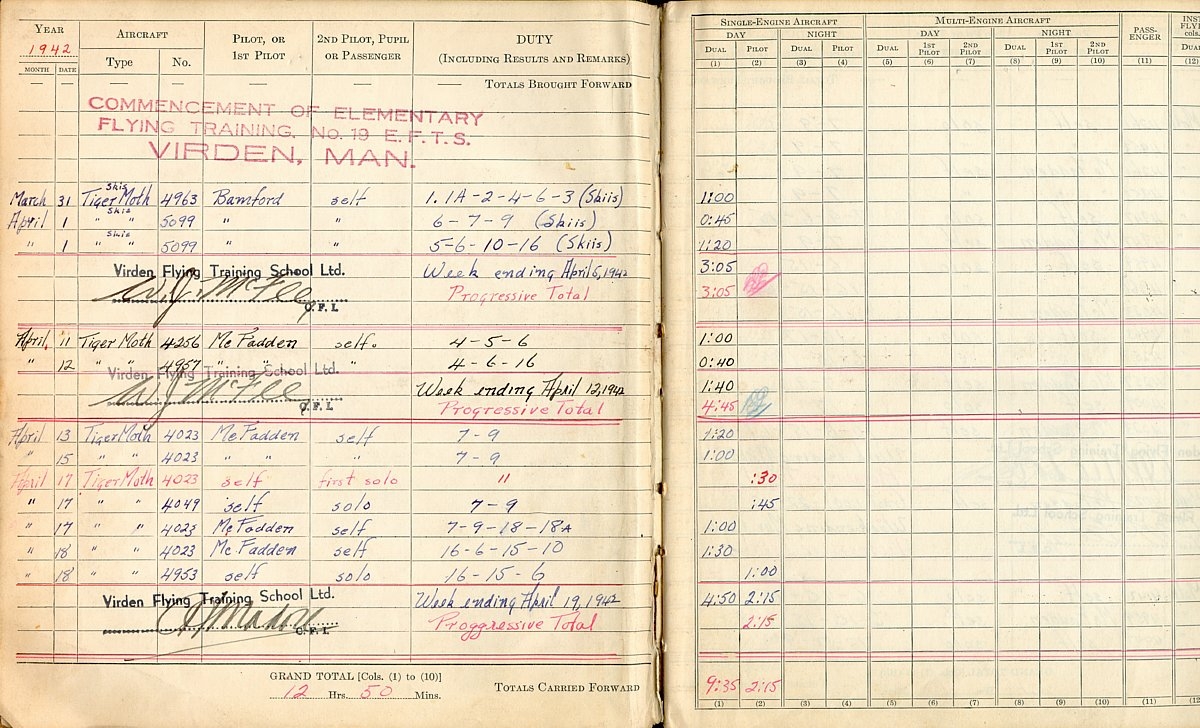 YEAR 1942 AIRCRAFT PILOT, OR 1ST PILOT 2ND PILOT, PUPIL OR PASSENGER DUTY (INCLUDING RESULTS AND REMARKS) SINGLE-ENGINE AIRCRAFT MULTI-ENGINE AIRCRAFT PASS-ENGER
MONTH DATE Type No. DAY NIGHT DAY NIGHT
DUAL PILOT DUAL PILOT DUAL 1ST PILOT 2ND PILOT DUAL 1ST PILOT 2ND PILOT
(1) (2) (3) (4) (5) (6) (7) (8) (9) (10) (11) (12)
— — — — — — — TOTALS BROUGHT FORWARD
COMMENCEMENT OF ELEMENTARY
FLYING TRAINING, NO. 19 E.F.T.S.
VIRDEN, MAN.
Skis
March 31 Tiger Moth 4963 Bamford self 1. 1A-2-4-6-3 (Skiis) 1:00
Skis
April 1 " " 5099 " " 6-7-9 (Skiis) 0:45
Skis
" 1 " " 5099 " " 5-6-10-16 (Skiis) 1:20
Virden Flying Training School Ltd. Week ending April 5, 1942 3:05
W. J. McFee Progressive Total 3:05
C.F.I.
April 11 Tiger Moth 4256 McFadden self. 4-5-6 1:00
" 12 " " 4957 " " " 4-6-16 0:40
Virden Flying Training School Ltd. Week ending April 12, 1942 1:40
W. J. McFee Progressive Total 4:45
C.F.I.
April 13 Tiger Moth 4023 McFadden self 7-9 1:20
" 15 " " 4023 " " " 7-9 1:00
April 17 Tiger Moth 4023 self first solo 11 :30
" 17 " " 4049 self solo 7-9 :45
" 17 " " 4023 McFadden self 7-9-18-18A 1:00
" 18 " " 4023 McFadden self 16-6-15-10 1:30
" 18 " " 4953 self solo 16-15-6 1:00
Virden Flying Training School Ltd. Week ending April 19, 1942 4:50 2:15
Proggressive Total 2:15
C.F.I.
GRAND TOTAL [Cols. (1) to (10)]
12 Hrs. 50 Mins. TOTALS CARRIED FORWARD 9:35 2:15
(1) (2) (3) (4) (5) (6) (7) (8) (9) (10) (11) (12)